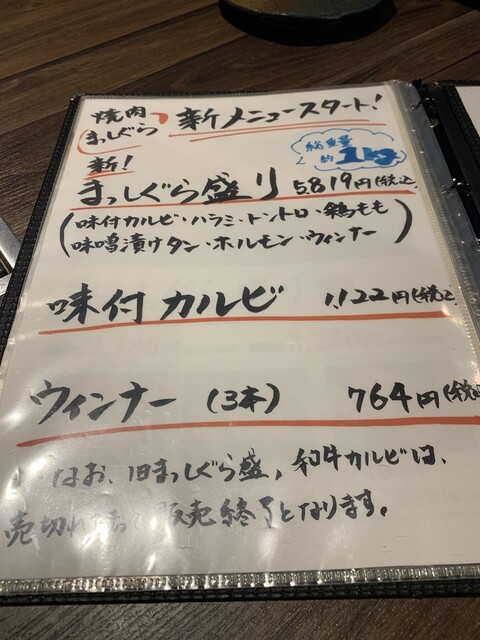 焼肉
まっしぐら
新メニュースタート!
総重量
約1kg
新!
まっしぐら盛り 5819円(税込
(味付カルビ・ハラミ・トントロ・鶏もも
味噌漬けタン・ホルモン・ウィンナー)
味付カルビ 1,122円(税込
ウィンナー (3本) 764円(税込
なお、旧まっしぐら盛、和牛カルビは、
売切れ 販売終了となります。